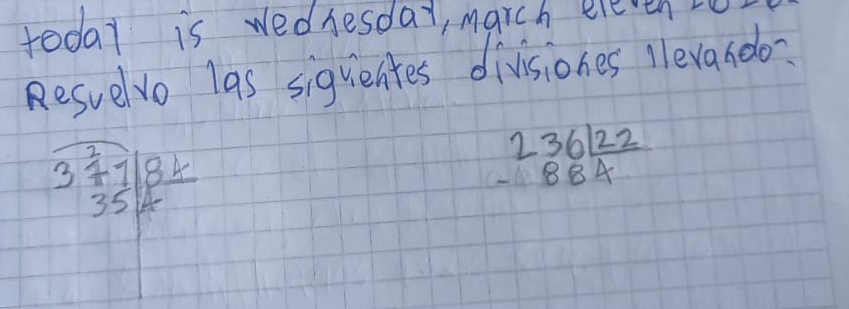 today is Wednesday, March eleven
Resuelvo las siguientes divisiones llevando:
2
371 84 236 22
35 4 - 884